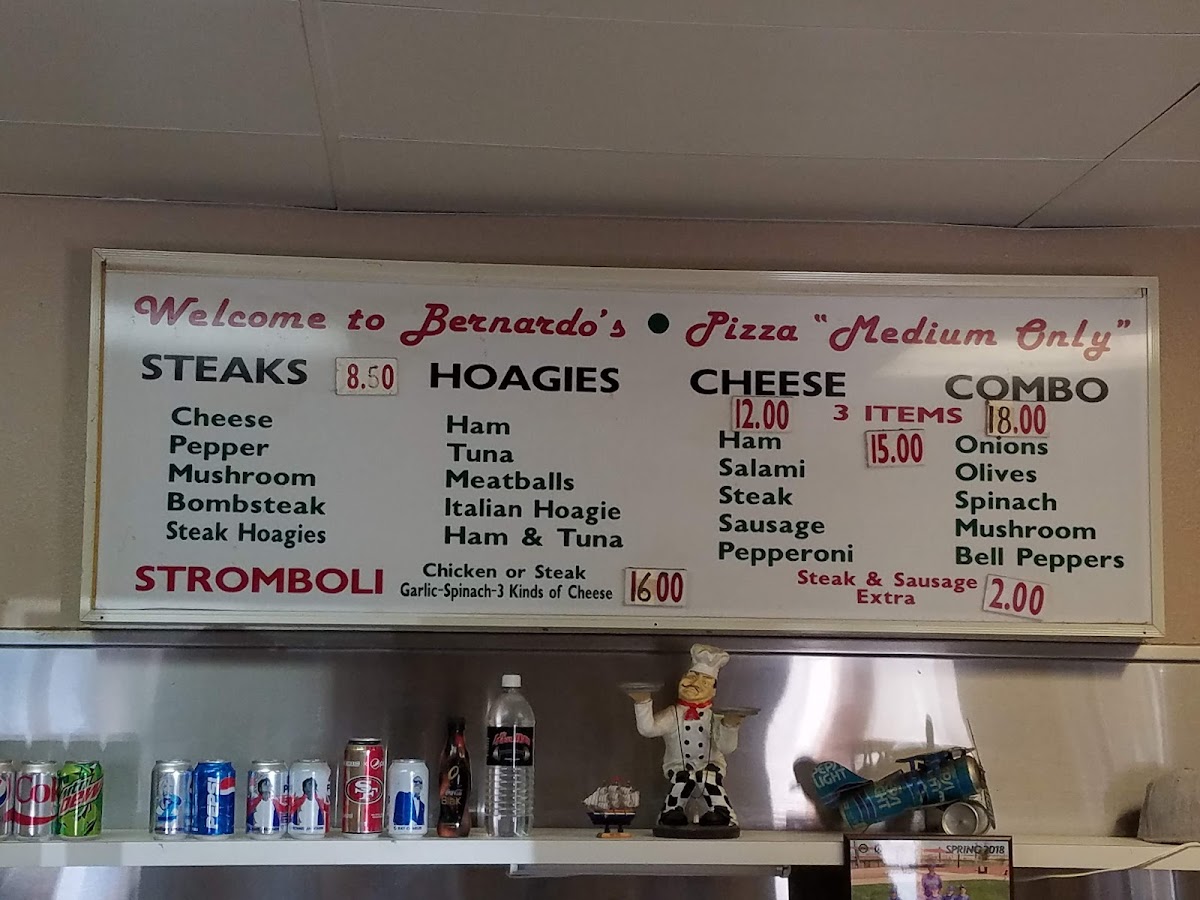 Welcome to Bernardo's • Pizza "Medium Only"
STEAKS 8.50
Cheese
Pepper
Mushroom
Bombsteak
Steak Hoagies
HOAGIES
Ham
Tuna
Meatballs
Italian Hoagie
Ham & Tuna
CHEESE
12.00
3 ITEMS
15.00
Ham
Salami
Steak
Sausage
Pepperoni
COMBO
18.00
Onions
Olives
Spinach
Mushroom
Bell Peppers
STROMBOLI
Chicken or Steak
Garlic-Spinach-3 Kinds of Cheese
16.00
Steak & Sausage
Extra
2.00
Coke
PEPSI
SF
SPRING 2018